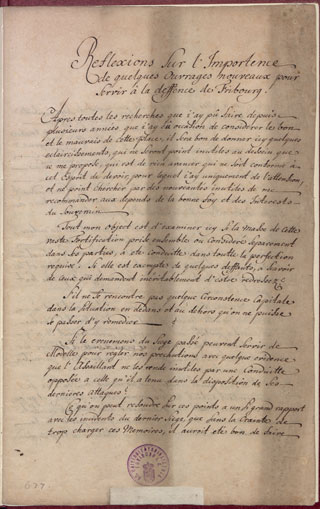 Reflexions Sur l'Importence
de quelques Ouvrages nouveaux pour
servir à la deffence de Fribourg.
Apres toutes les recherches que i'ay pû faire depuis
plusieurs années que i'ay eu ocasion de considerer les bons
et le mauvais de cette place, il sera bon de donner icy quelques
eclaircissements, qui ne seront point inutiles au dessein que
ie me propose, qui est de n'en avancer qui ne soit conforme à
cet Esprit de devoir pour lequel i'ay uniquement de l'attention,
et ne point chercher par des nouveautés inutiles de me
recommander aux depends de la bonne foy et des Interests
du Souverain.
Tout mon object est d'examiner icy Si la Masse de cette
vaste Fortification prise ensemble ou considerée separement
dans ses parties, a eté conduitte dans toutte la perfection
requise; Si elle est exempte de quelques deffauts, à sçavoir
de ceux qui demandent inevitablement d'estre redressés;
S'il ne se rencontre pas quelque circonstence Capitale
dans la Situation en dedans et au dehors qu'on ne puisse
se passer d'y remedier.
Si les evenements du Siege passé peuvent servir de
Modelle pour regler nos precautions avec quelque evidence
que l'Assaillant ne les rende inutiles par une Conduitte
opposée a celle qu'il a tenu dans la disposition de ses
dernieres attaques;
Ce qu'on peut resoudre sur ces points a un si grand rapport
avec les incidents du dernier Siege, que sans la Crainte de
trop charger ces Memoires, il auroit eté bon de faire